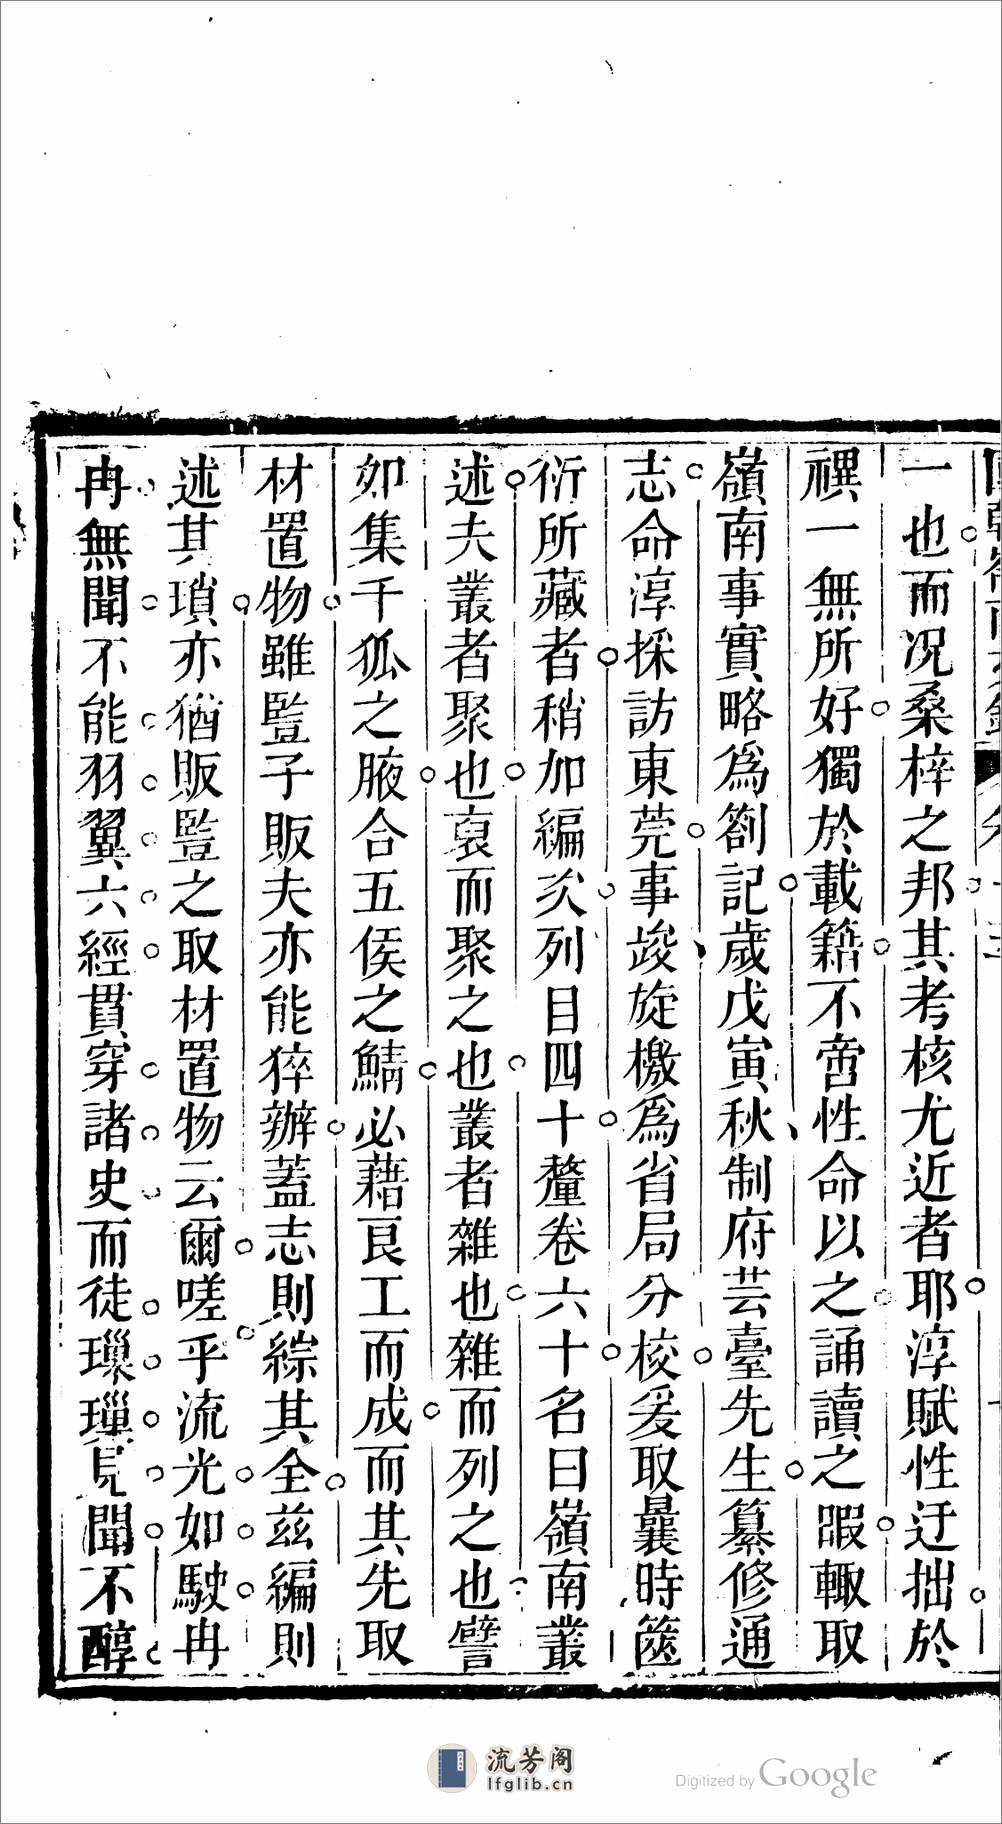 一也而况桑梓之邦其考核尤近者耶淳賦性迂拙於
禩一無所好獨於載籍不啻性命以之誦讀之暇輙取
嶺南事實略爲劄記歲戊寅秋制府芸臺先生纂修通
志命淳採訪東莞事竣旋檄爲省局分校爰取曩時篋
衍所藏者稍加編次列目四十釐卷六十名曰嶺南叢
述夫叢者聚也裒而聚之也叢者雜也雜而列之也譬
如集千狐之腋合五侯之鯖必藉良工而成而其先取
材置物雖豎子販夫亦能猝辦蓋志則綜其全兹編則
述其瑣亦猶販豎之取材置物云爾嗟乎流光如駛冉
冉無聞不能羽翼六經貫穿諸史而徒璅璅見聞不醇
流芳阁
lfglib.cn
Digitized by Google